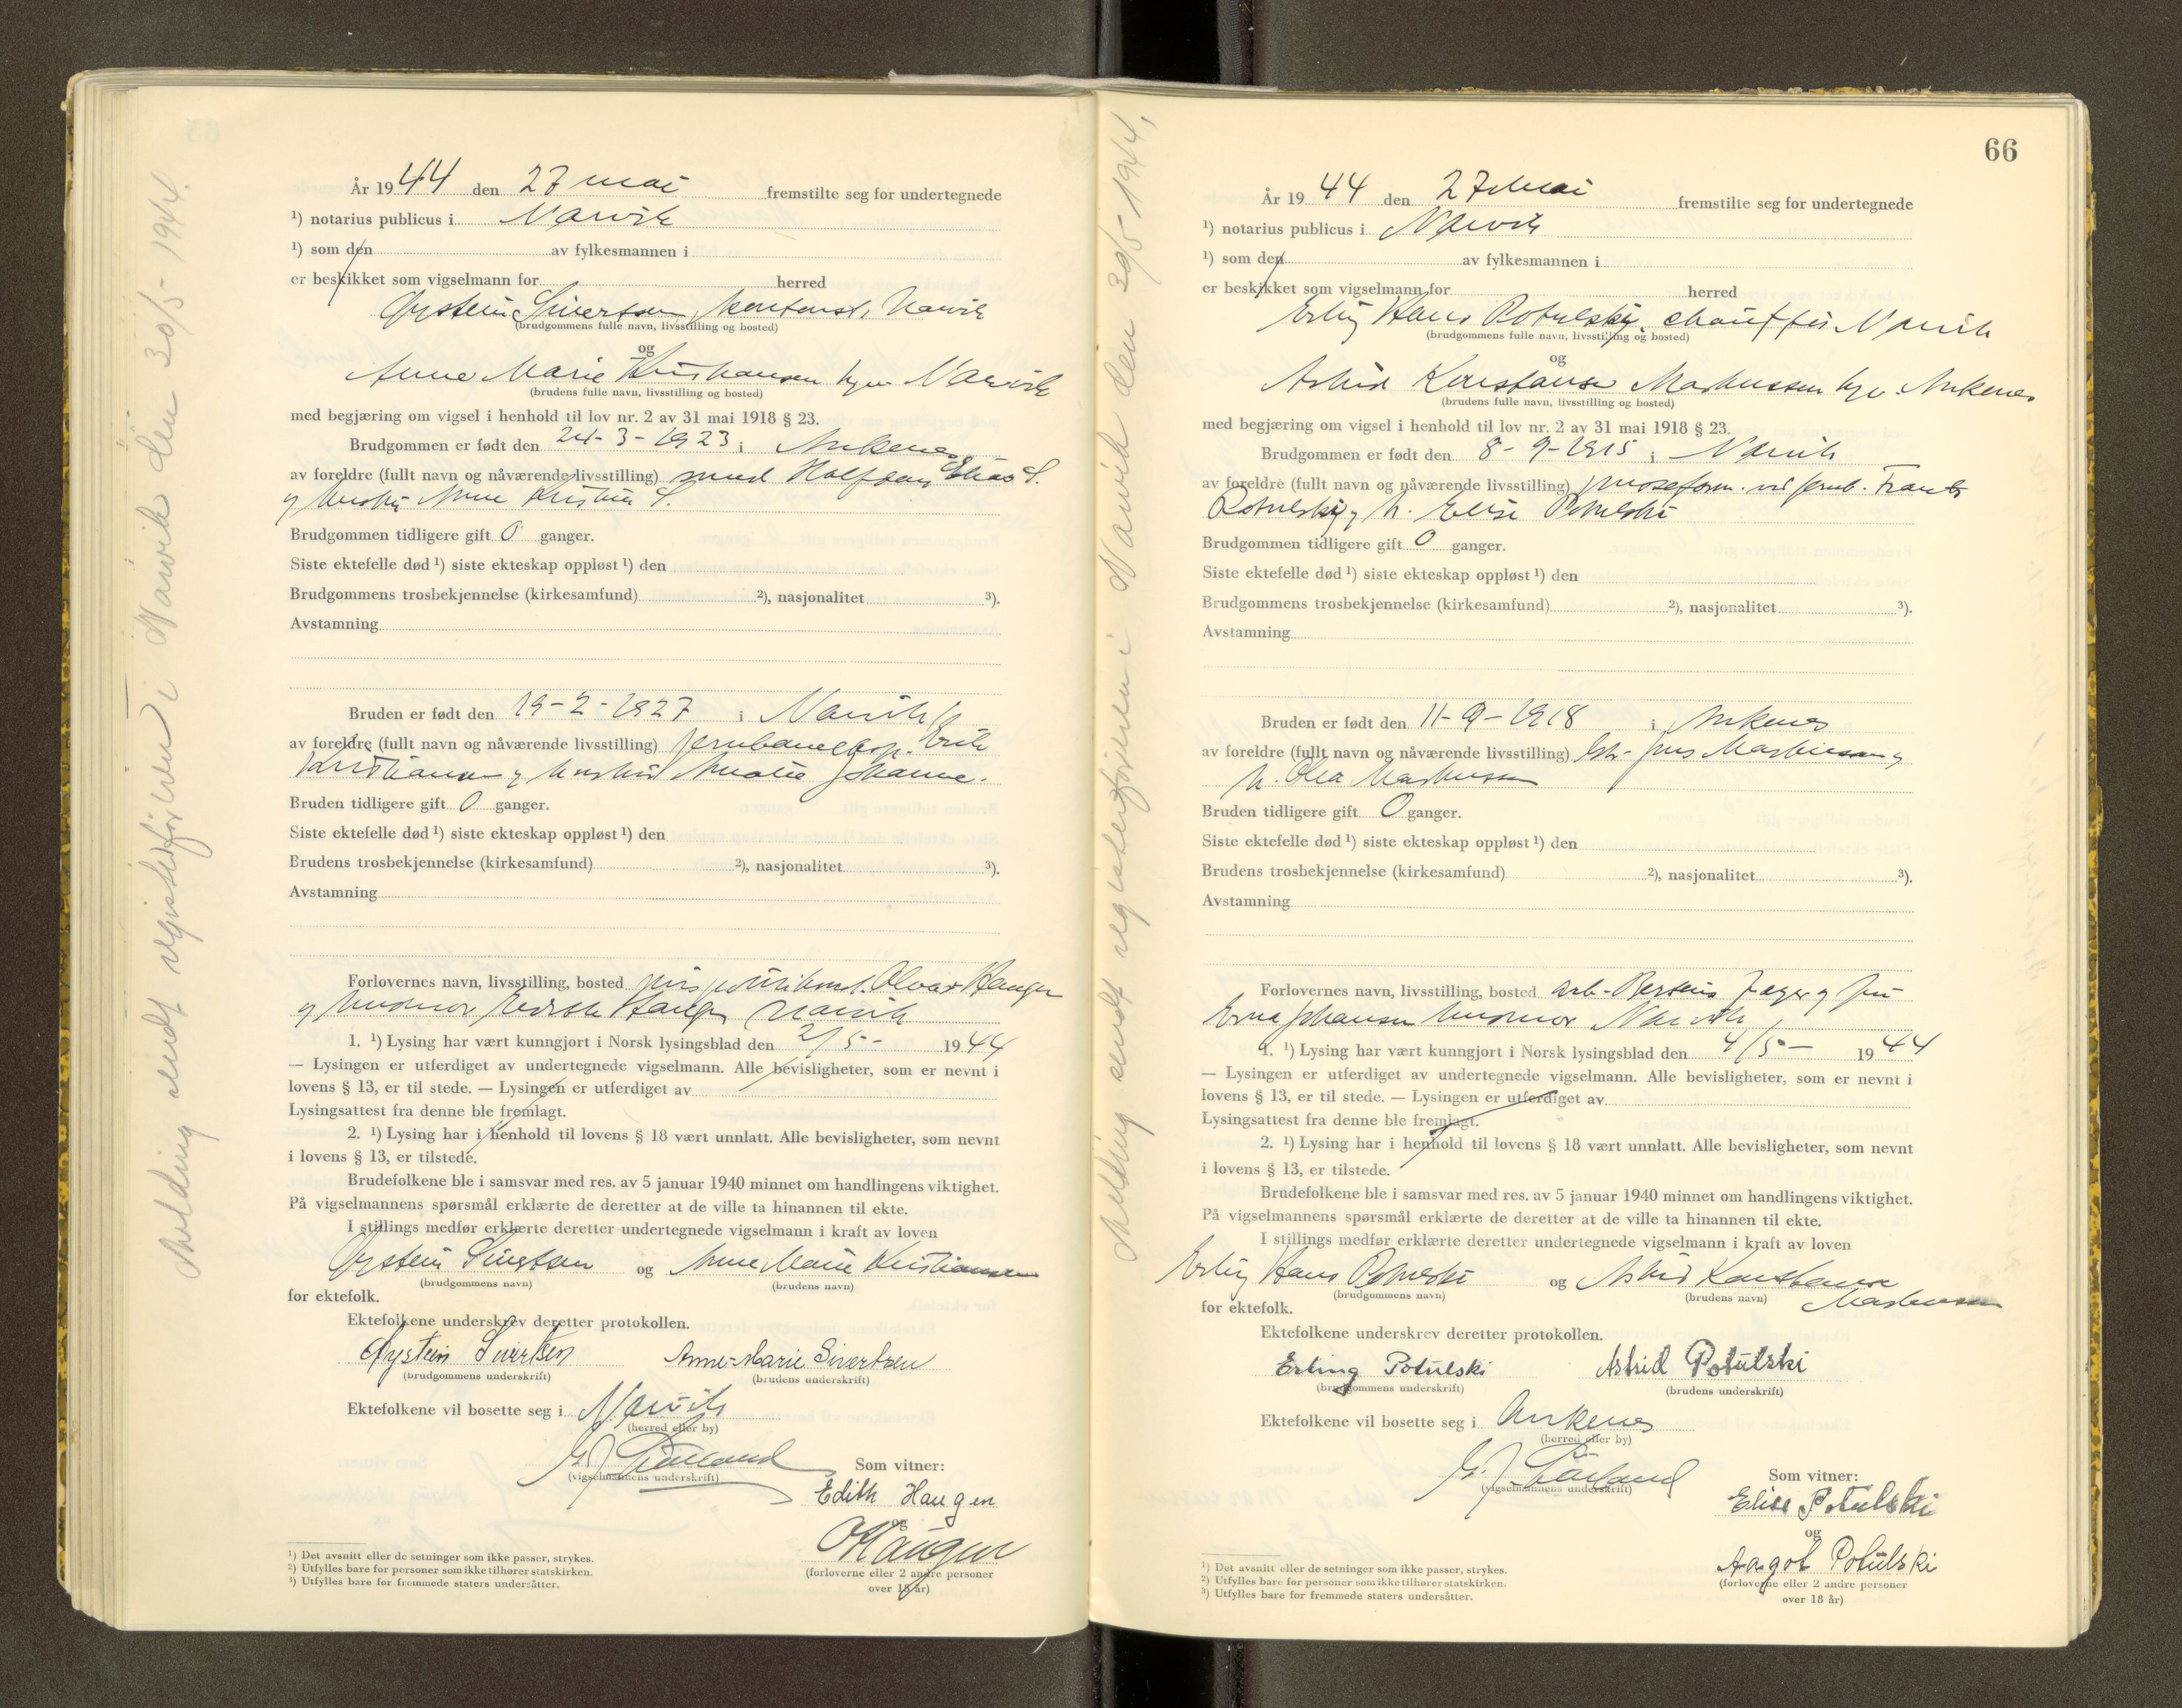 År 1944 den 27 mai fremstilte seg for undertegnede
¹) notarius publicus i Narvik
¹) som den av fylkesmannen i
er beskikket som vigselmann for herred
Øystein Sivertsen, kontorist, Narvik
(brudgommens fulle navn, livsstilling og bosted)
og
Anne Marie Kristiansen hjv. Narvik
(brudens fulle navn, livsstilling og bosted)
med begjæring om vigsel i henhold til lov nr. 2 av 31 mai 1918 § 23.
Brudgommen er født den 24-3-1923 i Ankenes
av foreldre (fullt navn og nåværende livsstilling) smed Halfdan Elias S.
og hustru Anne Kristine S.
Brudgommen tidligere gift 0 ganger.
Siste ektefelle død ¹) siste ekteskap oppløst ¹) den
Brudgommens trosbekjennelse (kirkesamfund) ²), nasjonalitet ³).
Avstamning
Bruden er født den 19-2-1927 i Narvik
av foreldre (fullt navn og nåværende livsstilling) Erik
Kristiansen og hustru Amalie Johanne.
Bruden tidligere gift 0 ganger.
Siste ektefelle død ¹) siste ekteskap oppløst ¹) den
Brudens trosbekjennelse (kirkesamfund) ²), nasjonalitet ³).
Avstamning
Forlovernes navn, livsstilling, bosted Olvar Haugen
og husmor Edith Haugen Narvik
1. ¹) Lysing har vært kunngjort i Norsk lysingsblad den 2/5- 1944
— Lysingen er utferdiget av undertegnede vigselmann. Alle bevisligheter, som er nevnt i
lovens § 13, er til stede. — Lysingen er utferdiget av
Lysingsattest fra denne ble fremlagt.
2. ¹) Lysing har i henhold til lovens § 18 vært unnlatt. Alle bevisligheter, som nevnt
i lovens § 13, er tilstede.
Brudefolkene ble i samsvar med res. av 5 januar 1940 minnet om handlingens viktighet.
På vigselmannens spørsmål erklærte de deretter at de ville ta hinannen til ekte.
I stillings medfør erklærte deretter undertegnede vigselmann i kraft av loven
Øystein Sivertsen og Anne Marie Kristiansen
(brudgommens navn) (brudens navn)
for ektefolk.
Ektefolkene underskrev deretter protokollen.
Øystein Sivertsen Anne-Marie Sivertsen
(brudgommens underskrift) (brudens underskrift)
Ektefolkene vil bosette seg i Narvik
(herred eller by)
(vigselmannens underskrift)
Som vitner:
Edith Haugen
og
O Haugen
(forloverne eller 2 andre personer
over 18 år)
¹) Det avsnitt eller de setninger som ikke passer, strykes.
²) Utfylles bare for personer som ikke tilhører statskirken.
³) Utfylles bare for fremmede staters undersåtter.
Melding sendt registerføreren i Narvik den 30/5-1944.
66
År 1944 den 27 mai fremstilte seg for undertegnede
¹) notarius publicus i Narvik
¹) som den av fylkesmannen i
er beskikket som vigselmann for herred
Erling Hans Potulski, chauffør Narvik
(brudgommens fulle navn, livsstilling og bosted)
og
Astrid Konstanse Markussen hjv. Ankenes
(brudens fulle navn, livsstilling og bosted)
med begjæring om vigsel i henhold til lov nr. 2 av 31 mai 1918 § 23.
Brudgommen er født den 8-9-1915 i Narvik
av foreldre (fullt navn og nåværende livsstilling) Frants
Potulski og h. Elise Potulski
Brudgommen tidligere gift 0 ganger.
Siste ektefelle død ¹) siste ekteskap oppløst ¹) den
Brudgommens trosbekjennelse (kirkesamfund) ²), nasjonalitet ³).
Avstamning
Bruden er født den 11-9-1918 i Ankenes
av foreldre (fullt navn og nåværende livsstilling) Jens Markussen og
h. Olea Markussen
Bruden tidligere gift 0 ganger.
Siste ektefelle død ¹) siste ekteskap oppløst ¹) den
Brudens trosbekjennelse (kirkesamfund) ²), nasjonalitet ³).
Avstamning
Forlovernes navn, livsstilling, bosted arb. og fru
Erna Johansen husmor Narvik
1. ¹) Lysing har vært kunngjort i Norsk lysingsblad den 4/5- 1944
— Lysingen er utferdiget av undertegnede vigselmann. Alle bevisligheter, som er nevnt i
lovens § 13, er til stede. — Lysingen er utferdiget av
Lysingsattest fra denne ble fremlagt.
2. ¹) Lysing har i henhold til lovens § 18 vært unnlatt. Alle bevisligheter, som nevnt
i lovens § 13, er tilstede.
Brudefolkene ble i samsvar med res. av 5 januar 1940 minnet om handlingens viktighet.
På vigselmannens spørsmål erklærte de deretter at de ville ta hinannen til ekte.
I stillings medfør erklærte deretter undertegnede vigselmann i kraft av loven
Erling Hans Potulski og Astrid Konstanse
Markussen
(brudgommens navn) (brudens navn)
for ektefolk.
Ektefolkene underskrev deretter protokollen.
Erling Potulski Astrid Potulski
(brudgommens underskrift) (brudens underskrift)
Ektefolkene vil bosette seg i Ankenes
(herred eller by)
(vigselmannens underskrift)
Som vitner:
Elise Potulski
og
Aagot Potulski
(forloverne eller 2 andre personer
over 18 år)
¹) Det avsnitt eller de setninger som ikke passer, strykes.
²) Utfylles bare for personer som ikke tilhører statskirken.
³) Utfylles bare for fremmede staters undersåtter.
Melding sendt registerføreren i Narvik den 30/5-1944,